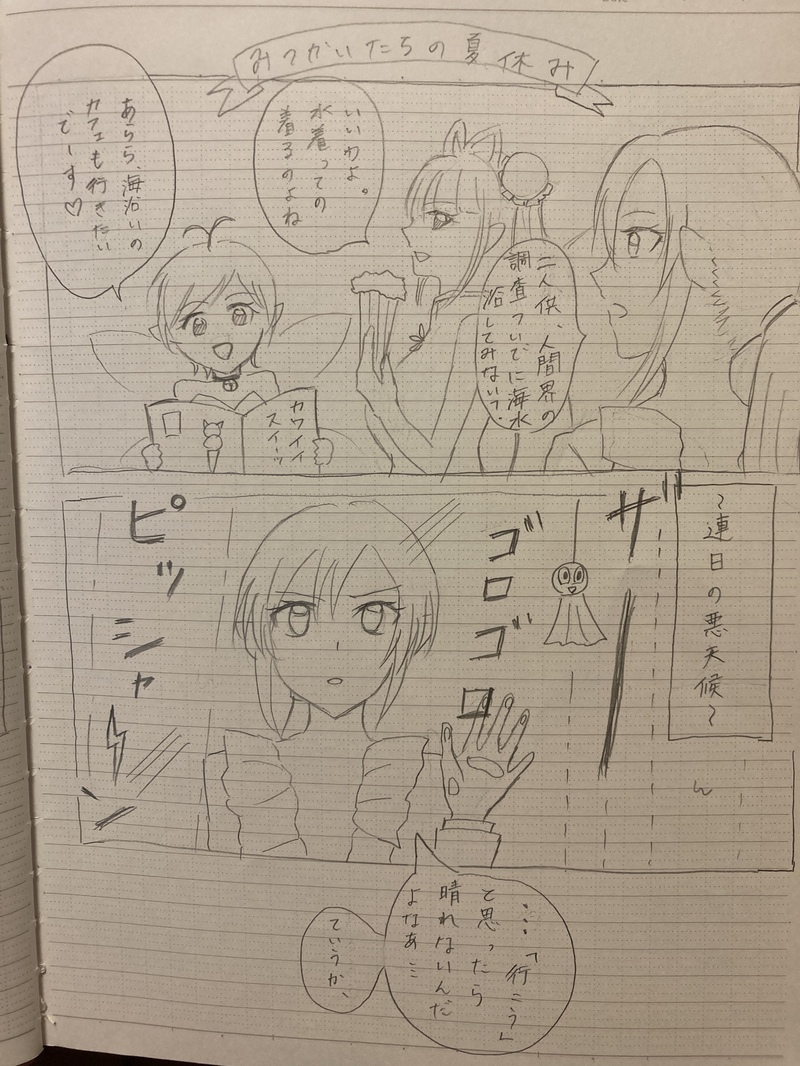 みつかいたちの夏休み
二人共、人間界の
調査ついでに海水
浴してみない?
いいわよ。
水着っての
着るのよね
あらら、海沿いの
カフェも行きたい
でーす♡
カワイイ
スイーツ
〜連日の悪天候〜
ザ
ゴロゴロ
ピッシャーン
…「行こう」
と思ったら
晴れないんだ
よなあ…
ていうか、